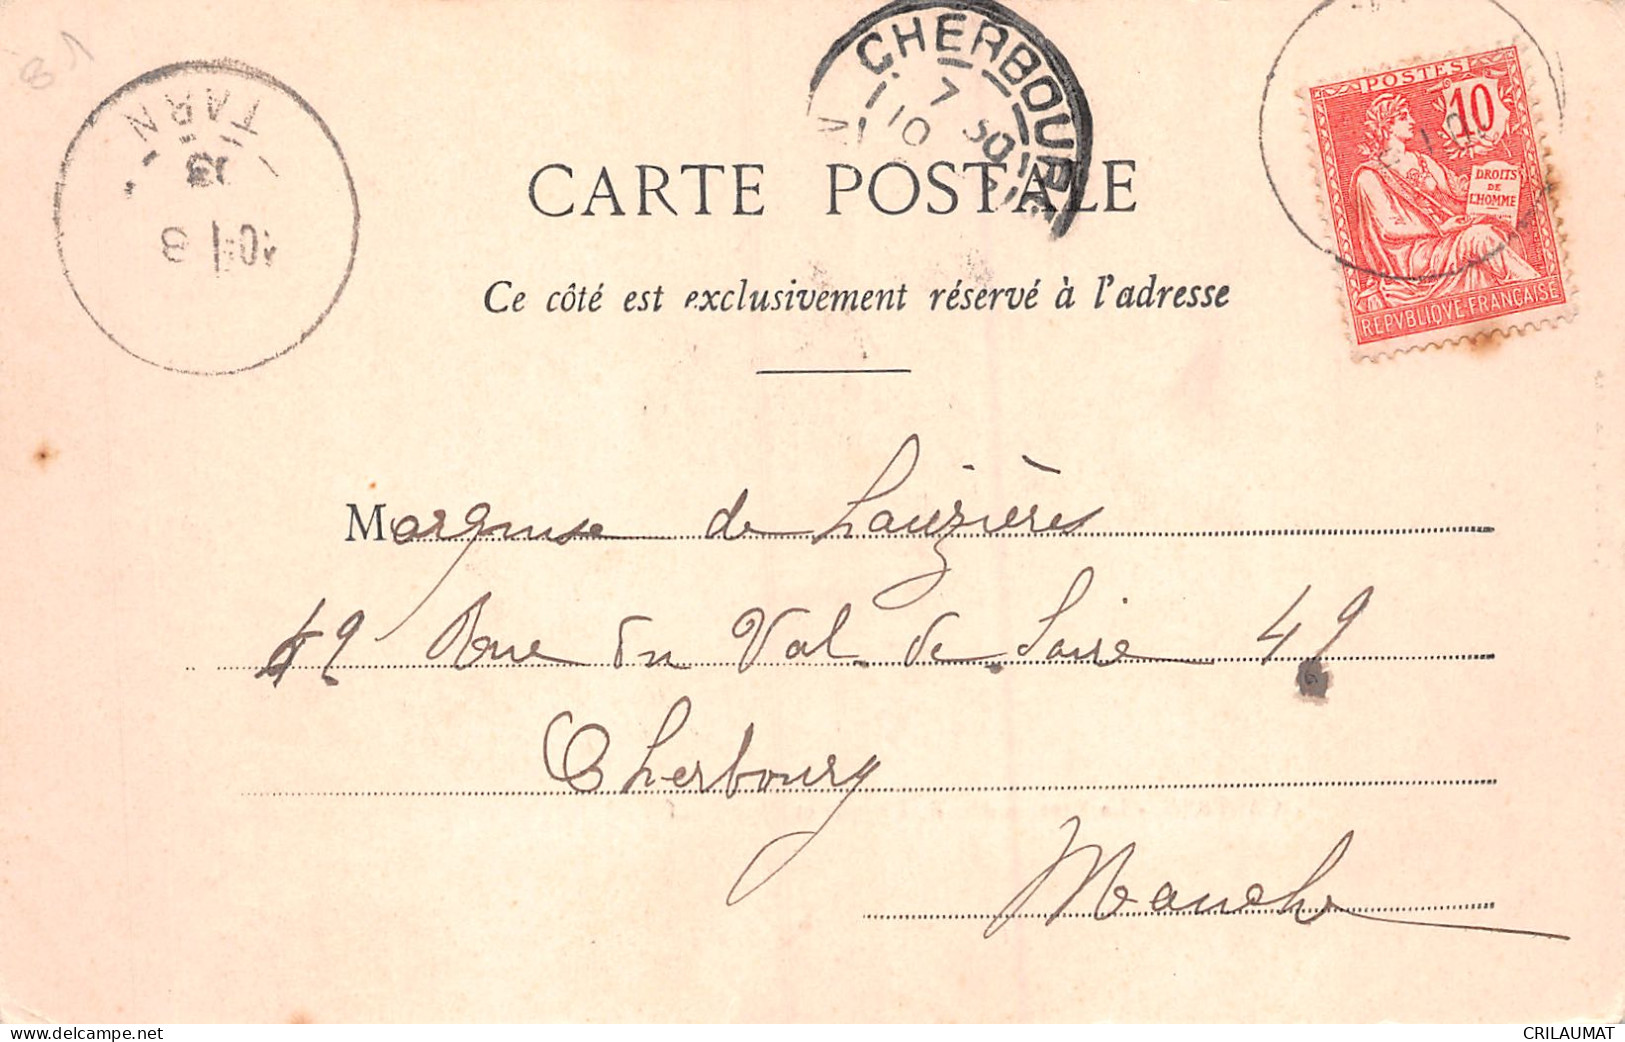 81
CHERBOURG
7
30
10
POSTES
10
DROITS
DE
L'HOMME
REPVBLIQVE FRANÇAISE
TARN
CARTE POSTALE
Ce côté est exclusivement réservé à l'adresse
Marquise de Lauzières
49 Rue du Val de Saire 49
Cherbourg
Manche
delcampe.net
CRILAUMAT